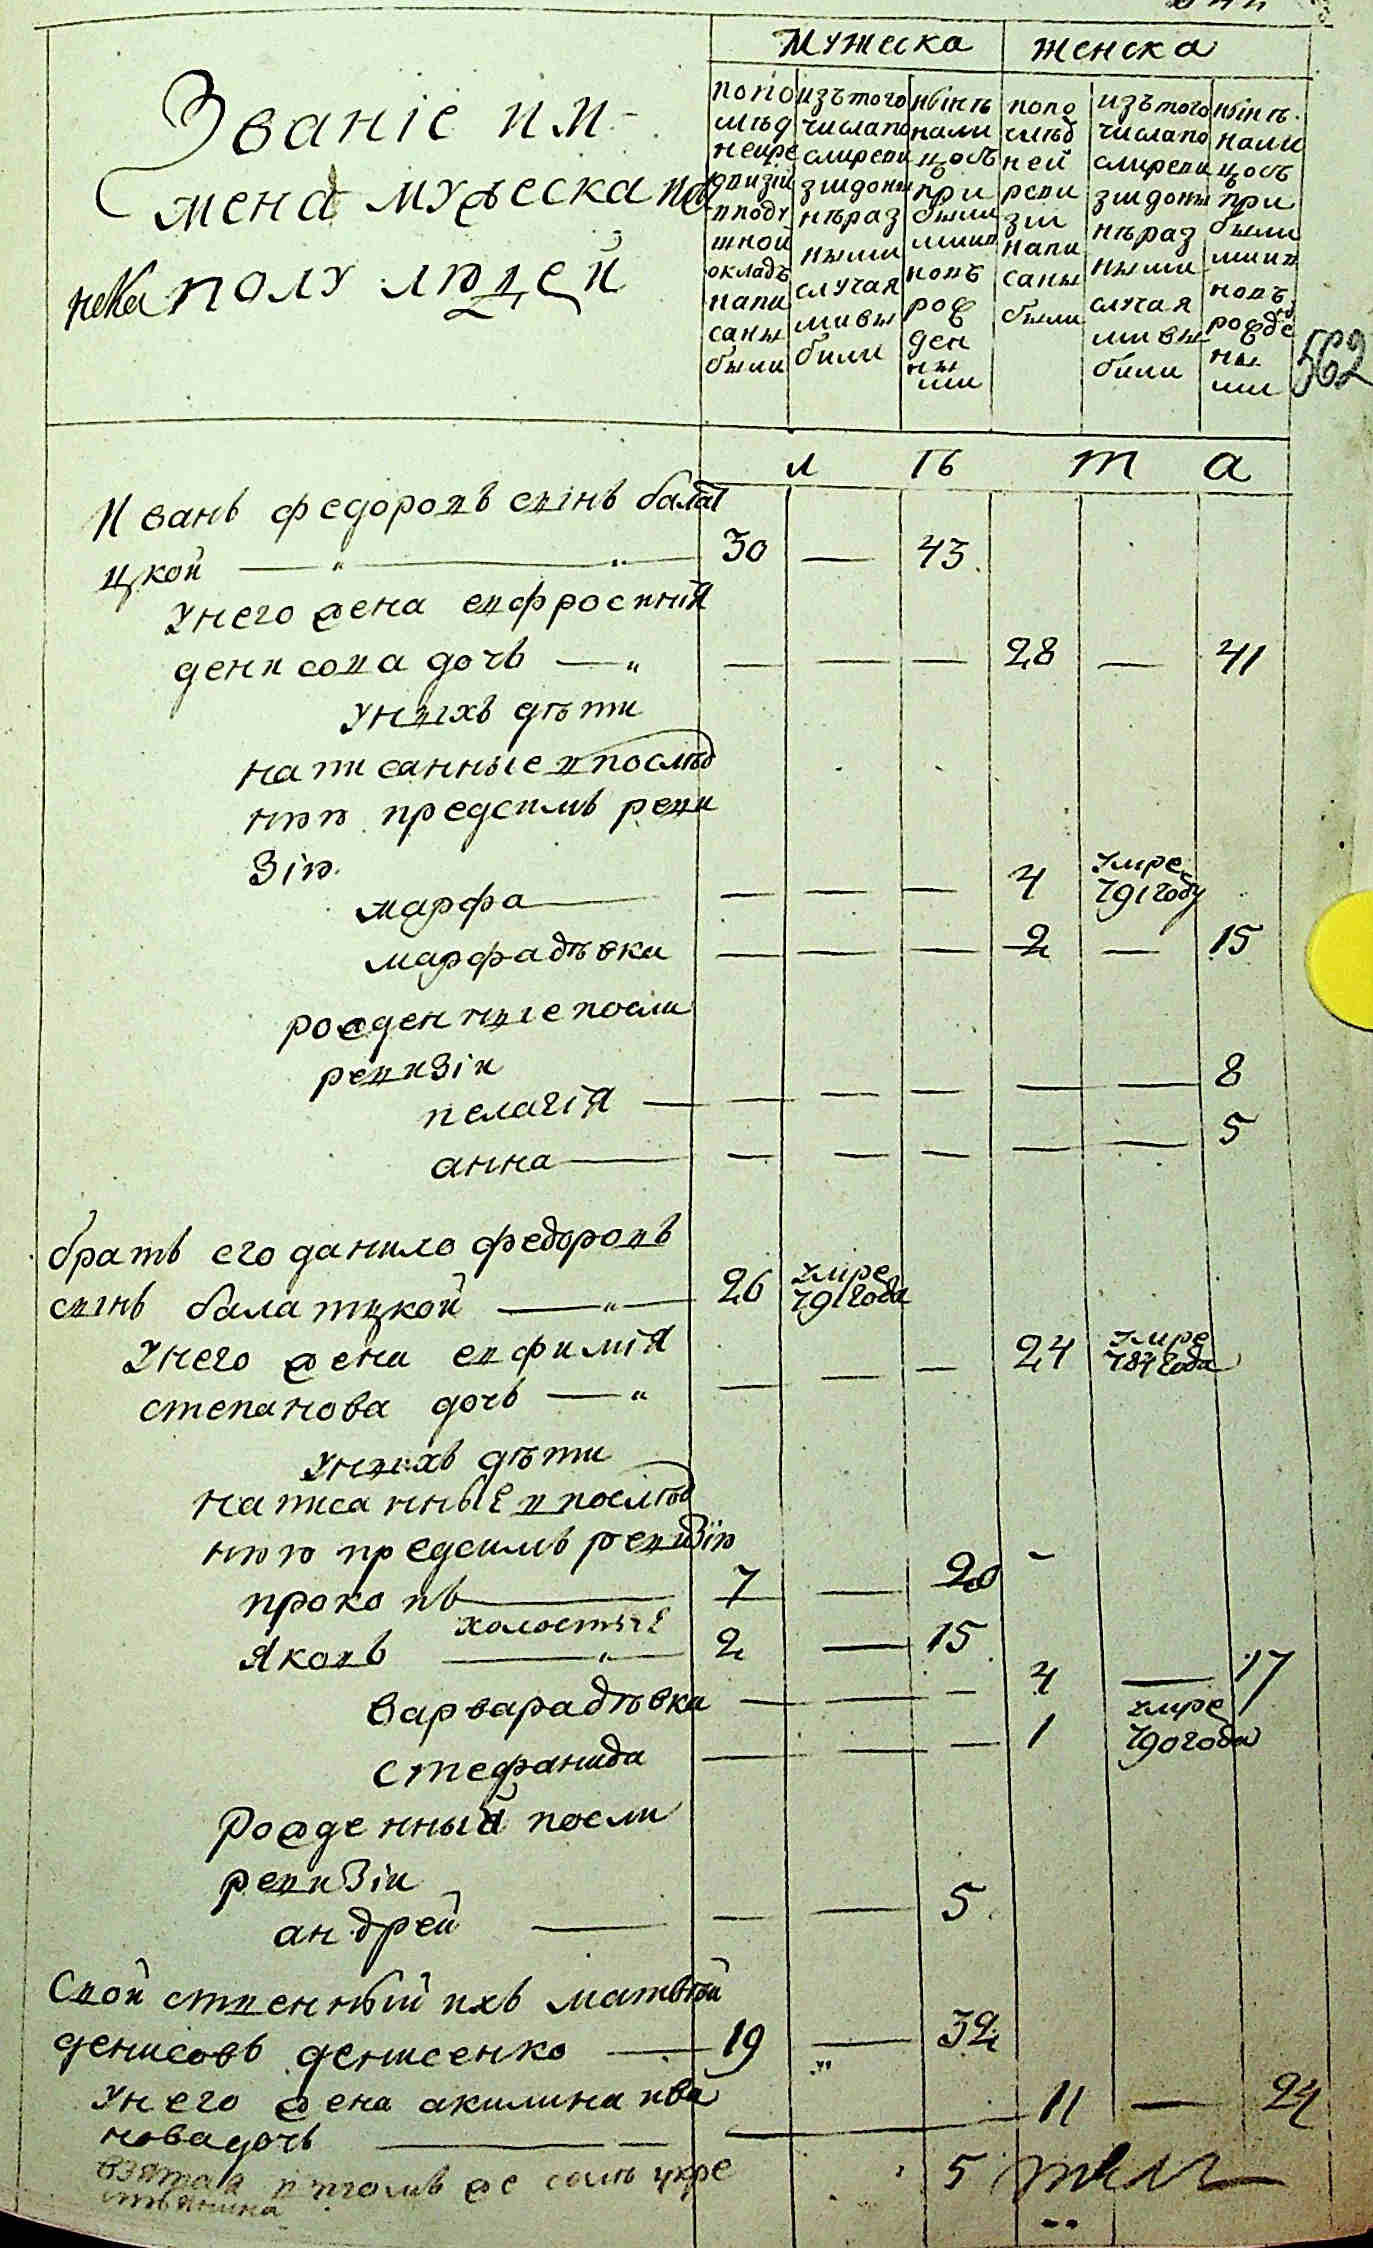 Мужеска
женска
Званіе и и
мена мужеска и
женска полу людей
по по
слѣд
ней ре
визіи
в поду
шной
окладъ
напи
саны
были
изъ того
числа по
слѣ реви
зіи до ны
нѣ раз
ными
случая
ми вы
были
нынѣ
нали
цо съ
при
былы
ми и в
новъ
рож
ден
ны
ми
по по
слѣд
ней
реви
зіи
напи
саны
были
изъ того
числа по
слѣ реви
зіи до ны
нѣ раз
ными
случая
ми вы
были
нынѣ
нали
цо съ
при
былы
ми и в
новъ
рожде
ны
ми
562
л ѣ т а
Иванъ федоровъ сынъ балат
цкой 30 — 43
У него жена евфросинія
денисова дочь — — — 28 — 41
У ныхъ дѣти
написанные в послѣд
нюю предъ симъ реви
зію
марфа — — — 4 умре 791 году
марфа дѣвка — — — 2 — 15
рожденные посли
ревизіи
пелагія — — — — — 8
анна — — — — — 5
братъ его данило федоровъ
сынъ балатцкой 26 умре 791 года
У него жена евфимія
степанова дочь — — — 24 умре 787 года
У ныхъ дѣти
написанные в послѣд
нюю предъ симъ ревизію
прокопъ 7 — 20
холостые
Яковъ 2 — 15
варвара дѣвка — — — 4 — 17
стефанида — — — 1 умре 790 года
Рожденный посли
ревизіи
андрей — — 5
Свойственный ихъ матвѣй
денисовъ денисенко 19 — 32
У него жена акилина ива
нова дочь — 11 — 24
взятая в томъ же селѣ у кре
стьянина
5